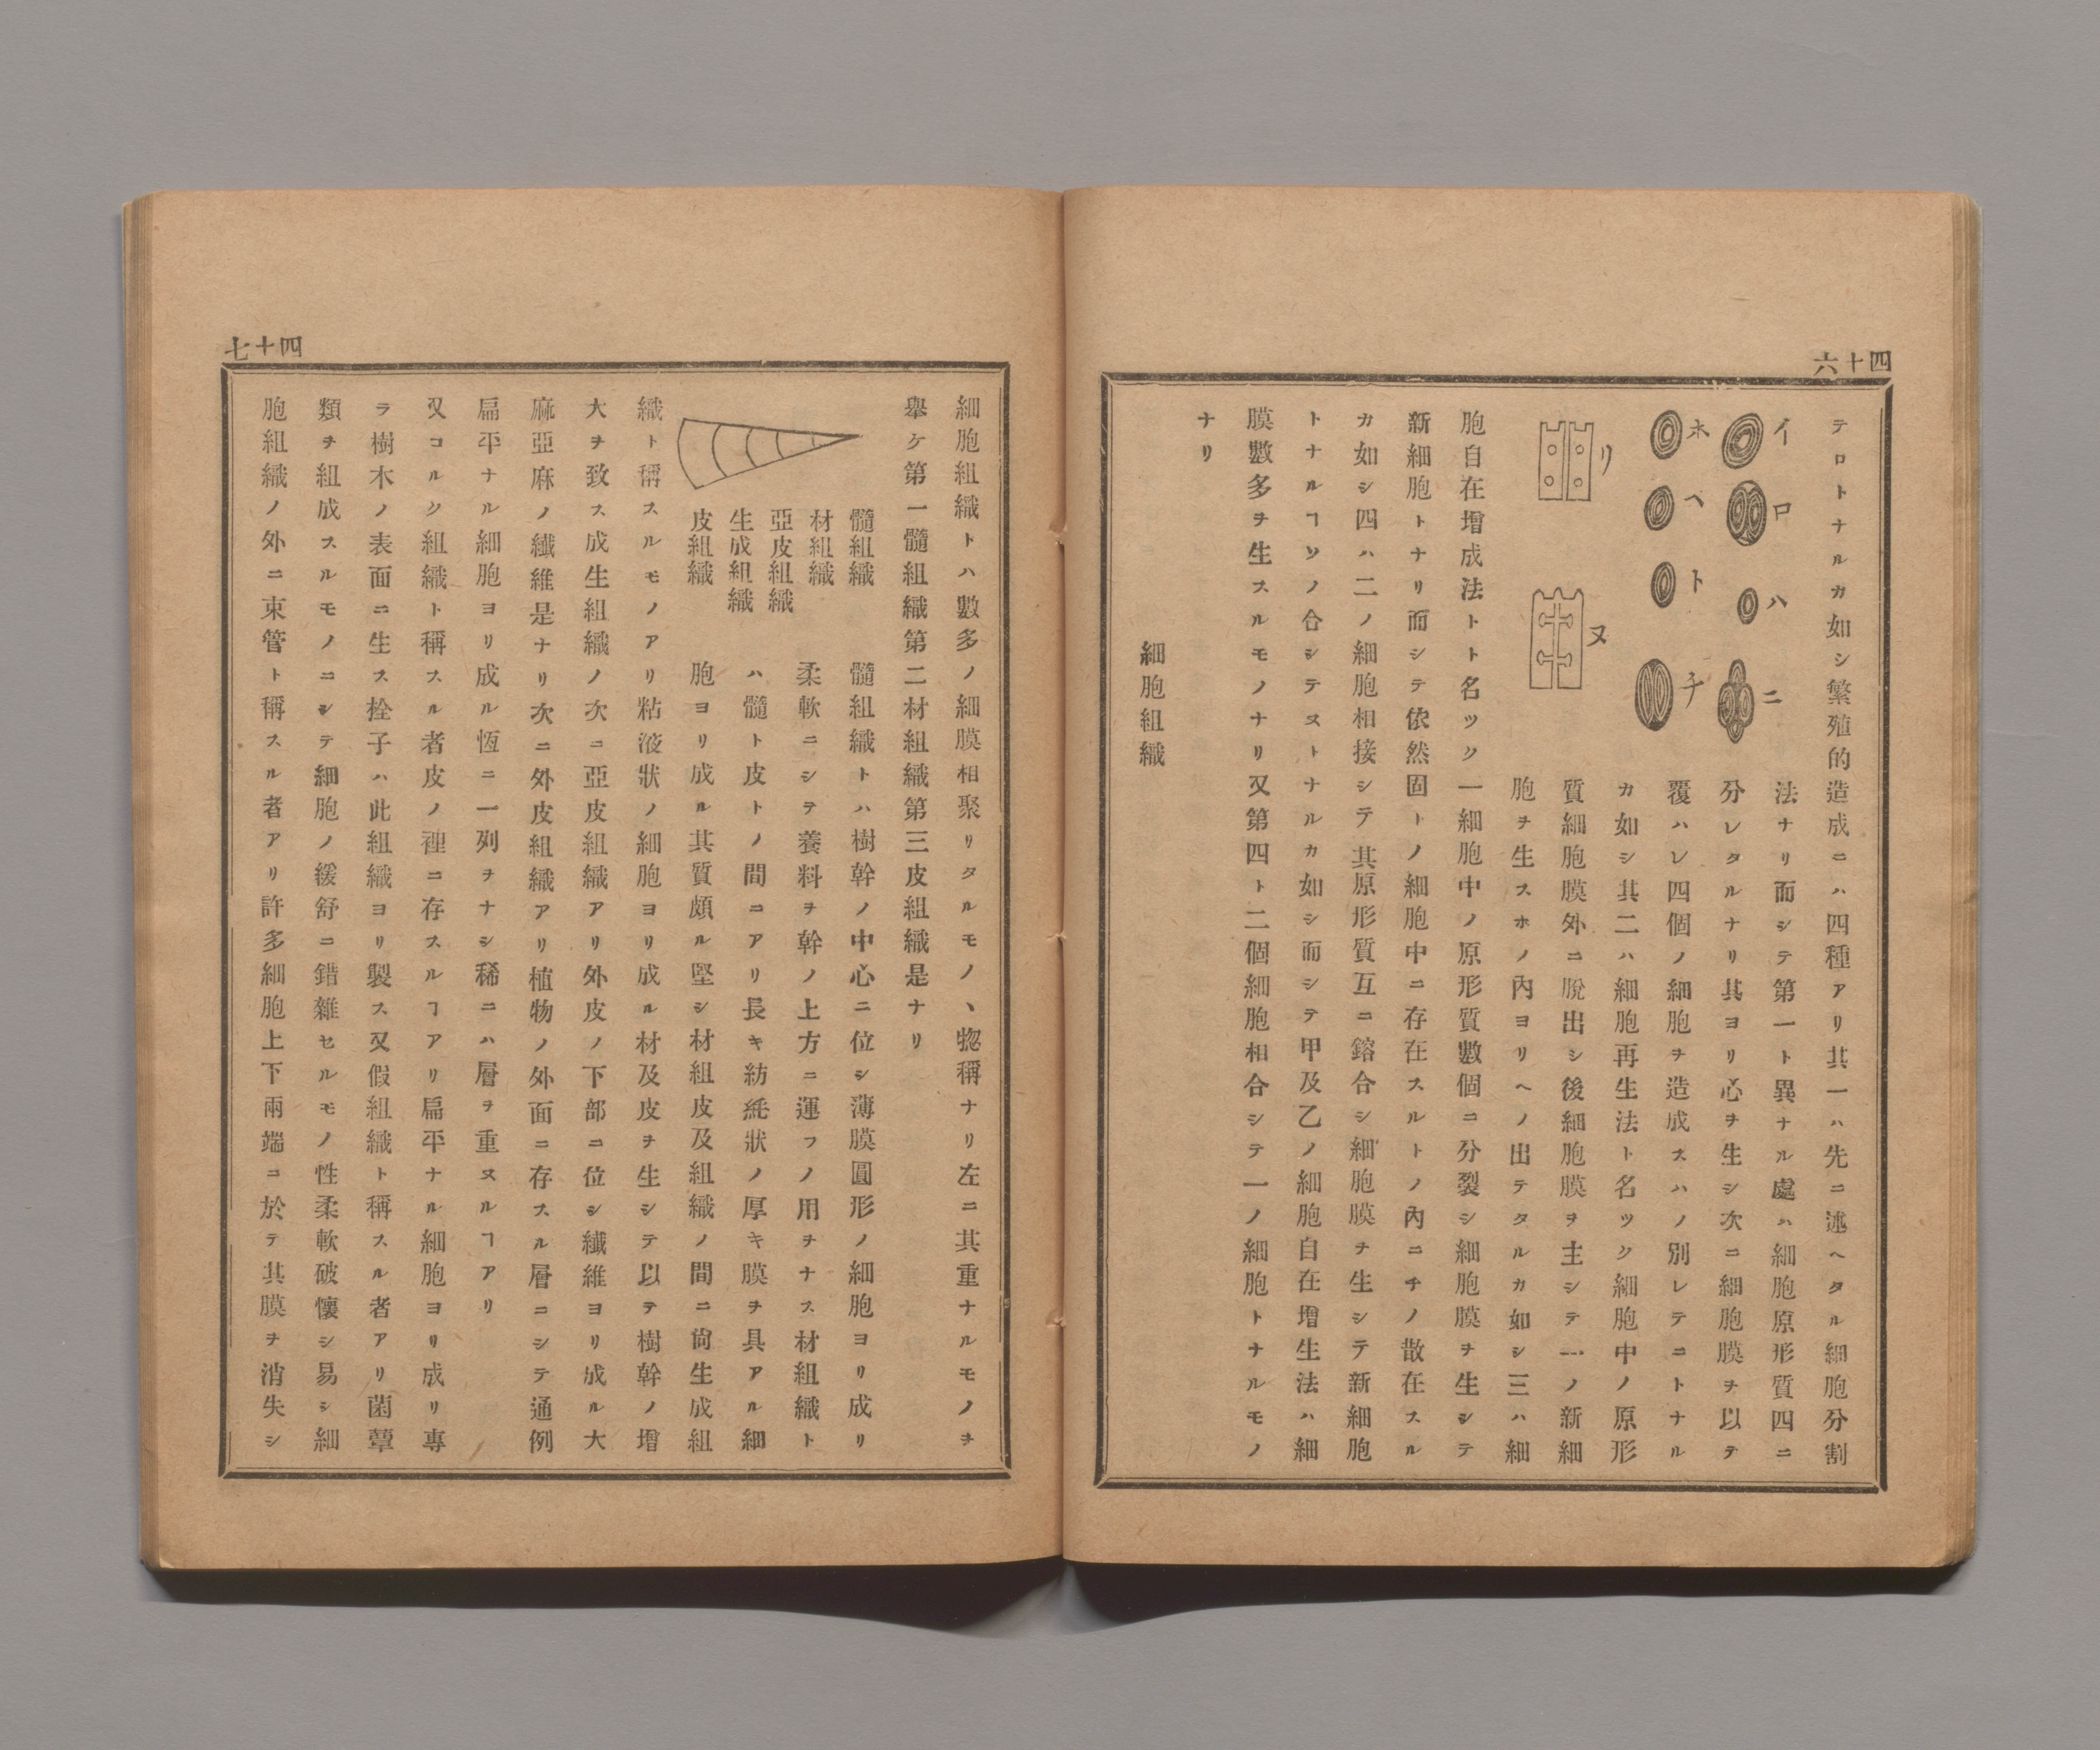 四十六
テロトナルカ如シ繁殖的造成ニハ四種アリ其一ハ先ニ述ヘタル細胞分割
法ナリ而シテ第一ト異ナル處ハ細胞原形質四ニ
分レタルナリ其ヨリ心ヲ生シ次ニ細胞膜ヲ以テ
覆ハレ四個ノ細胞ヲ造成スハノ別レテニトナル
カ如シ其二ハ細胞再生法ト名ツク細胞中ノ原形
質細胞膜外ニ脫出シ後細胞膜ヲ主シテ一ノ新細
胞ヲ生スホノ內ヨリヘノ出テタルカ如シ三ハ細
胞自在增成法トト名ツク一細胞中ノ原形質數個ニ分裂シ細胞膜ヲ生シテ
新細胞トナリ而シテ依然固トノ細胞中ニ存在スルトノ內ニチノ散在スル
カ如シ四ハ二ノ細胞相接シテ其原形質互ニ鎔合シ細胞膜ヲ生シテ新細胞
トナルヿソノ合シテヌトナルカ如シ而シテ甲及乙ノ細胞自在增生法ハ細
膜數多ヲ生スルモノナリ又第四ト二個細胞相合シテ一ノ細胞トナルモノ
ナリ
細胞組織
イ
ロ
ハ
ニ
ホ
ヘ
ト
チ
リ
ヌ
四十七
細胞組織トハ數多ノ細膜相聚リタルモノヽ惣稱ナリ左ニ其重ナルモノヲ
擧ケ第一髓組織第二材組織第三皮組織是ナリ
髓組織
材組織
亞皮組織
生成組織
皮組織
髓組織トハ樹幹ノ中心ニ位シ薄膜圓形ノ細胞ヨリ成リ
柔軟ニシテ養料ヲ幹ノ上方ニ運フノ用ヲナス材組織ト
ハ髓ト皮トノ間ニアリ長キ紡紙狀ノ厚キ膜ヲ具アル細
胞ヨリ成ル其質頗ル堅シ材組皮及組織ノ間ニ尙生成組
織ト稱スルモノアリ粘液狀ノ細胞ヨリ成ル材及皮ヲ生シテ以テ樹幹ノ增
大ヲ致ス成生組織ノ次ニ亞皮組織アリ外皮ノ下部ニ位シ纎維ヨリ成ル大
麻亞麻ノ纎維是ナリ次ニ外皮組織アリ植物ノ外面ニ存スル層ニシテ通例
扁平ナル細胞ヨリ成ル恆ニ一列ヲナシ稀ニハ層ヲ重ヌルヿアリ
又コルク組織ト稱スル者皮ノ裡ニ存スルヿアリ扁平ナル細胞ヨリ成リ專
ラ樹木ノ表面ニ生ス栓子ハ此組織ヨリ製ス又假組織ト稱スル者アリ菌蕈
類ヲ組成スルモノニシテ細胞ノ緩舒ニ錯雜セルモノ性柔軟破懷シ易シ細
胞組織ノ外ニ束管ト稱スル者アリ許多細胞上下兩端ニ於テ其膜ヲ消失シ